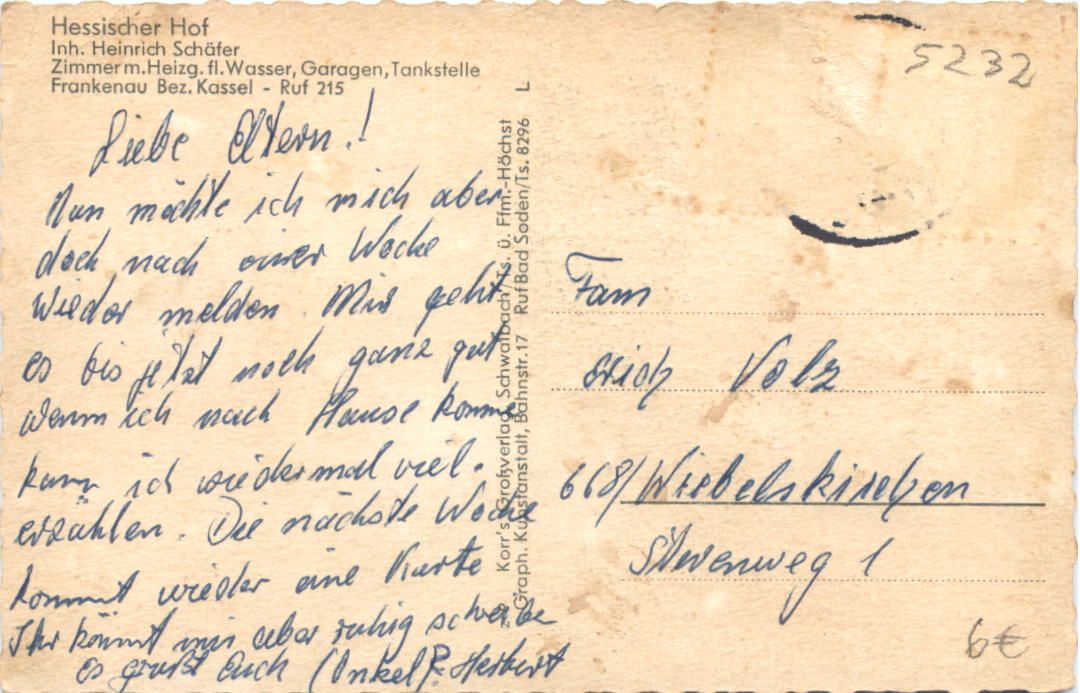 Hessischer Hof
Inh. Heinrich Schäfer
Zimmer m. Heizg. fl. Wasser, Garagen, Tankstelle
Frankenau Bez. Kassel - Ruf 215
Liebe Eltern!
Nun möchte ich mich aber
doch nach einer Woche
wieder melden. Mir geht
es bis jetzt noch ganz gut
wenn ich nach Hause komme
kann ich wiedermal viel.
erzählen. Die nächste Woche
kommt wieder eine Karte
Ihr könnt mir aber ruhig schreibe
es grüßt Euch (Onkel)? Herbert
Korr's Großverlag, Schwalbach/Ts. ü. Ffm.-Höchst
Graph. Kunstanstalt, Bahnstr. 17 Ruf Bad Soden/Ts. 8296 L
5232
Fam
Erich Volz
668/Wiebelskirchen
1
6€